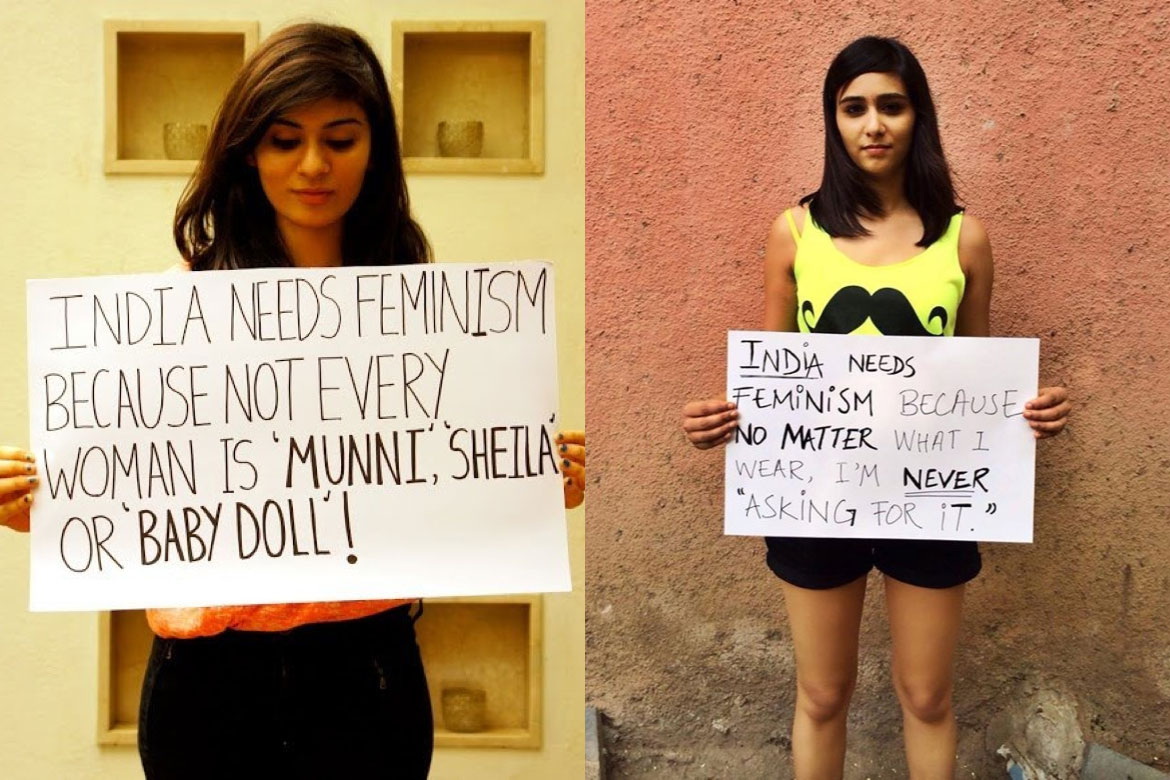 INDIA NEEDS FEMINISM
BECAUSE NOT EVERY
WOMAN IS 'MUNNI', 'SHEILA'
OR 'BABY DOLL'!
INDIA NEEDS
FEMINISM BECAUSE
NO MATTER WHAT I
WEAR, I'M NEVER
"ASKING FOR IT."